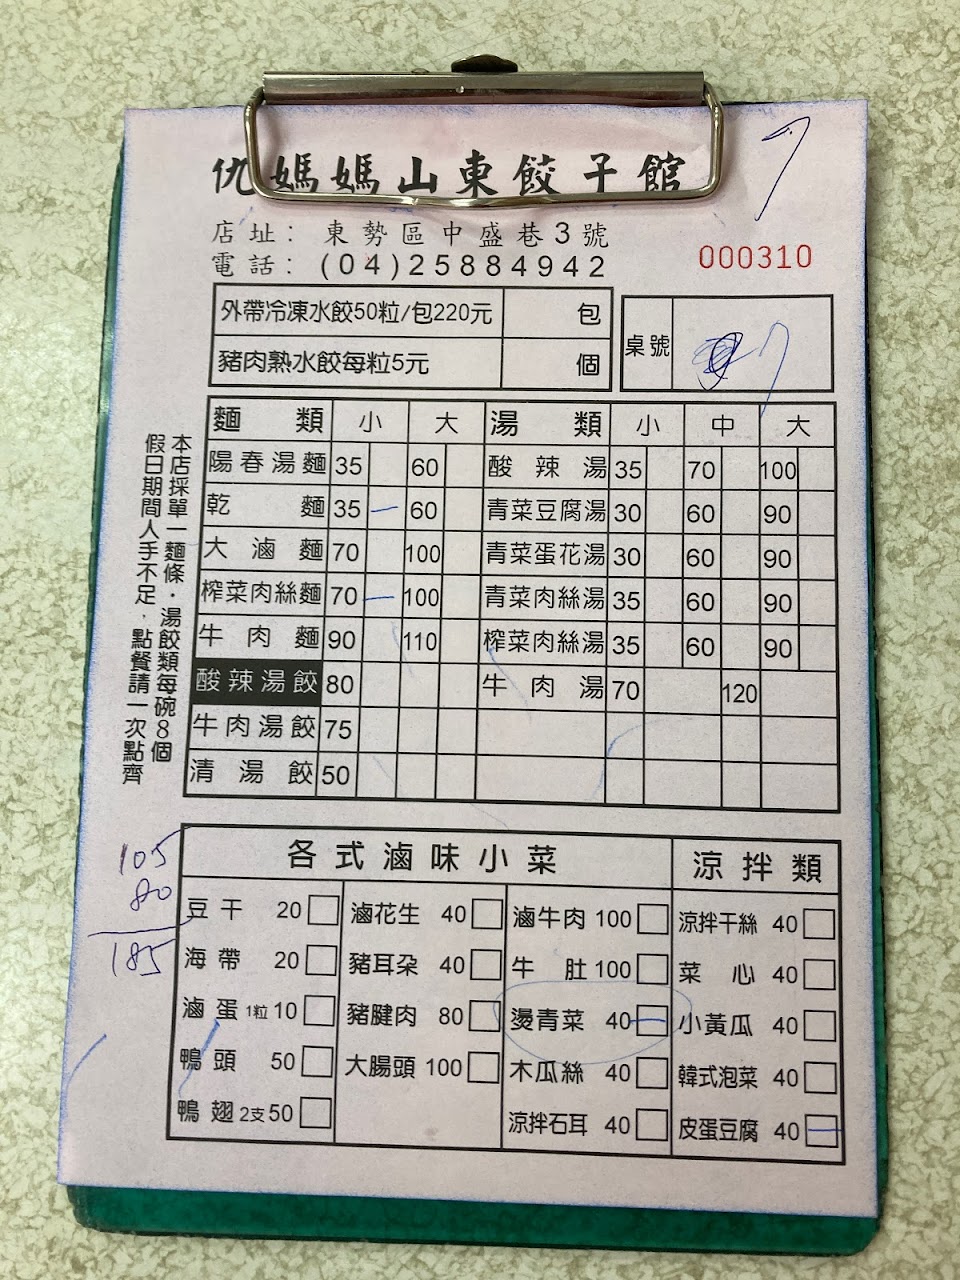 仇媽媽山東餃子館
店址：東勢區中盛巷3號
電話：(04)25884942
000310
外帶冷凍水餃50粒/包220元 包
豬肉熟水餃每粒5元 個
桌號 7
麵類 小 大 湯類 小 中 大
陽春湯麵 35 60 酸辣湯 35 70 100
乾麵 35 一 60 青菜豆腐湯 30 60 90
大滷麵 70 100 青菜蛋花湯 30 60 90
榨菜肉絲麵 70 一 100 青菜肉絲湯 35 60 90
牛肉麵 90 110 榨菜肉絲湯 35 60 90
酸辣湯餃 80 牛肉湯 70 120
牛肉湯餃 75
清湯餃 50
本店採單一麵條・湯餃類每碗8個
假日期間人手不足，點餐請一次點齊
105
80
185
各式滷味小菜 涼拌類
豆干 20 滷花生 40 滷牛肉 100 涼拌干絲 40
海帶 20 豬耳朵 40 牛肚 100 菜心 40
滷蛋 1粒 10 豬腱肉 80 燙青菜 40 一 小黃瓜 40
鴨頭 50 大腸頭 100 木瓜絲 40 韓式泡菜 40
鴨翅 2支 50 涼拌石耳 40 皮蛋豆腐 40 一